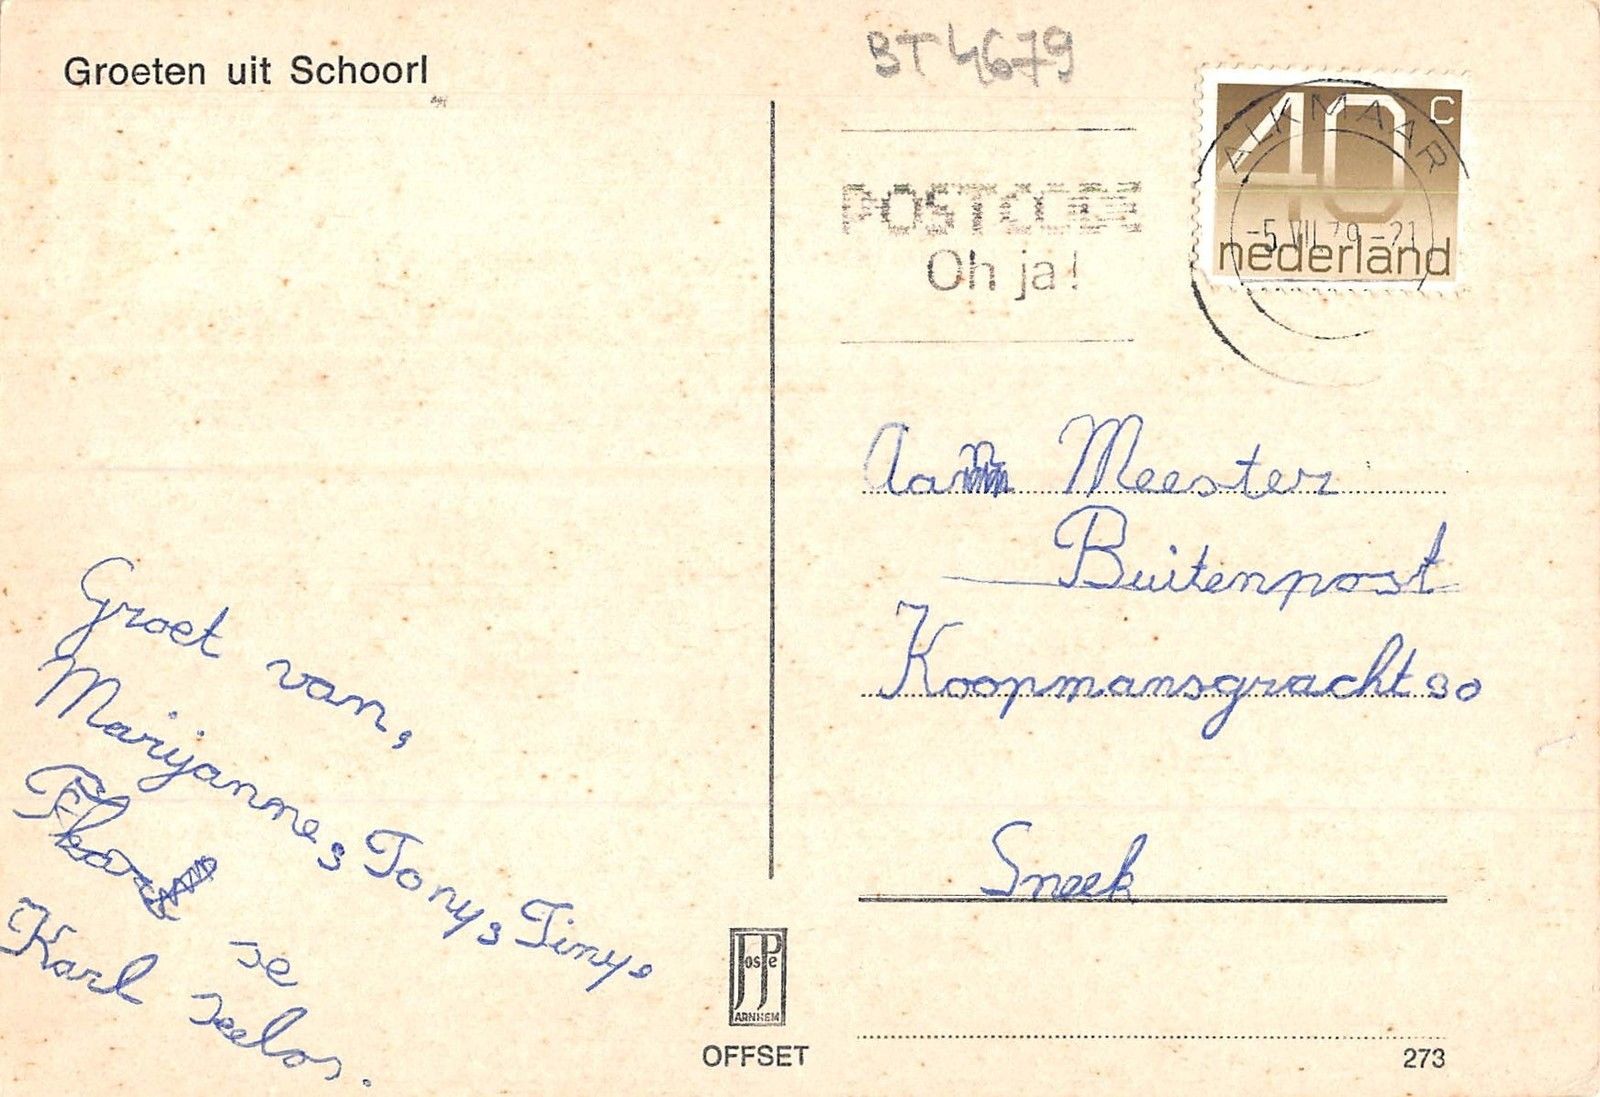 Groeten uit Schoorl
BT 4679
POSTCODE
Oh ja!
ALKMAAR
-5 VII 79 -21
40 C
nederland
Aan Meester
Buitenpost
Koopmansgracht
Sneek
Groet van,
Marijanne, Tony, Tiny,
se
Karl seelos.
JosPe
ARNHEM
OFFSET
273